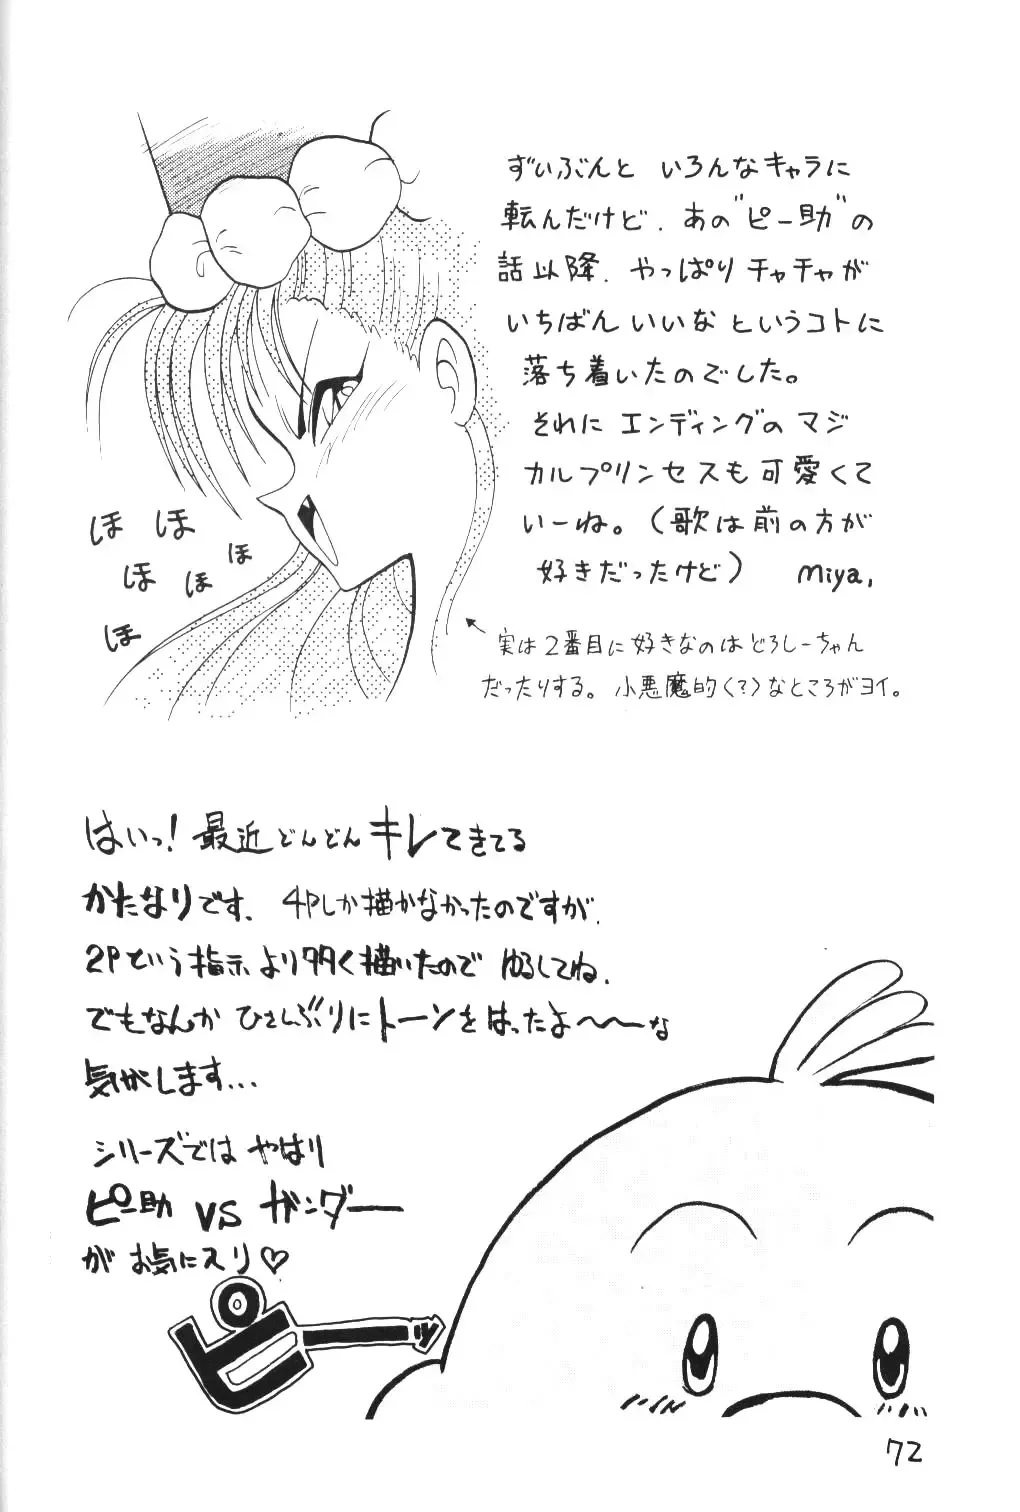 ずいぶんと いろんなキャラに
転んだけど、あの"ピー助"の
話以降、やっぱりチャチャが
いちばんいいなというコトに
落ち着いたのでした。
それに エンディングのマジ
カルプリンセスも可愛くて
いーね。(歌は前の方が
好きだったけど) Miya,
実は2番目に好きなのはどろしーちゃん
だったりする。小悪魔的(?)なところがヨイ。
ほ ほ
ほ ほ ほ
ほ
はいっ!最近どんどんキレてきてる
かたなりです。4Pしか描かなかったのですが、
2Pという指示より多く描いたので ゆるしてね。
でもなんか ひさしぶりにトーンをはったよ〜〜な
気がします...
シリーズでは やはり
ピー助 VS ガンダー
が お気にスリ♡
ピー
ッ
72